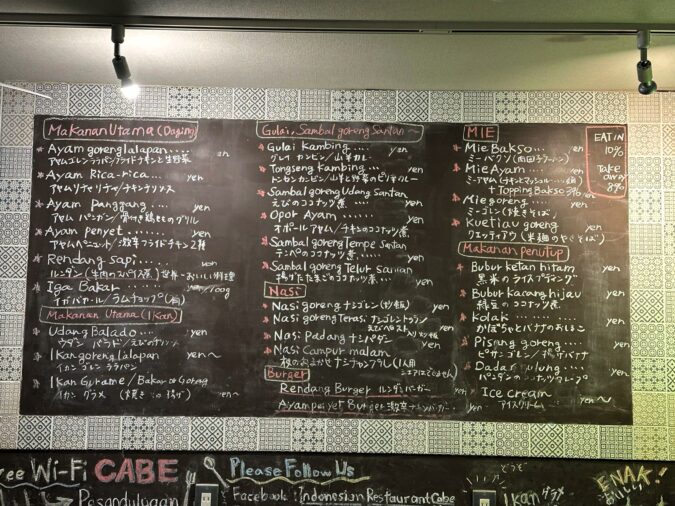 Makanan Utama (Daging)
Ayam goreng lalapan....
アヤムゴレンララパン/フライドチキンと生野菜
Ayam Rica-rica.... yen
Ayam panggang.... yen
アヤム パンガン/骨付き鶏もものグリル
Ayam penyet.... yen
アヤムペニェット/激辛フライドチキン
Rendang sapi.....
ルンダン (牛肉のスパイス煮) 世界一おいしい料理
Iga Bakar
イガバカール/ラムチョップ
Makanan Utama (Ikan)
Udang Balado... yen
ウダン バラド/えびの
Ikan goreng lalapan yen~
イカン ゴレン ララパン
Ikan Gurame / Bakar or Goreng
イカン グラメ
Gulai, Sambal goreng Santan ~
Gulai Kambing.... yen
グレイ カンビン/山羊カレー
Tongseng Kambing.... yen
トンセンカンビン/山羊と野菜の
Sambal goreng Udang Santan
えびのココナッツ煮 yen
Opor Ayam ...... yen
オポールアヤム/チキンのココナッツ煮
Sambal goreng Tempe Santan
テンペのココナッツ煮 yen
Sambal goreng Telur santan
揚げたたまごのココナッツ煮 yen
Nasi
Nasi goreng ナシゴレン(炒飯) yen
Nasi goreng Terasi ナシゴレントラシ yen
Nasi Padang ナシパダン yen
Nasi Campur malam yen
夜のおまかせナシチャンプル (1人用
Burger
Rendang Burger ルンダンバーガー yen
Ayam penyet Burger 激辛チキンバーガー yen
MIE
Mie Bakso.... yen
ミーバクソ/(肉団子ラーメン)
Mie Ayam ..... yen
+ Topping Bakso
Mie goreng .... yen
ミーゴレン (焼きそば)
Kuetiau goreng yen
クエッティアウ (米麺のやきそば)
EAT IN
10%
Take away
8%
Makanan penutup
Bubur ketan hitam yen
黒米のライスプディング
Bubur kacang hijau yen
緑豆のココナッツ煮
Kolak ..... yen
かぼちゃとバナナのおしるこ
Pisang goreng.... yen
ピサンゴレン/揚げバナナ
Dadar gulung.... yen
パンダンのココナッツクレープ
Ice cream yen~
アイスクリーム
Free Wi-Fi CABE
Pesandulugan
Please Follow Us
Facebook : Indonesian Restaurant Cabe
どうぞ
Ikan グラメ
ENAK!
おいしい